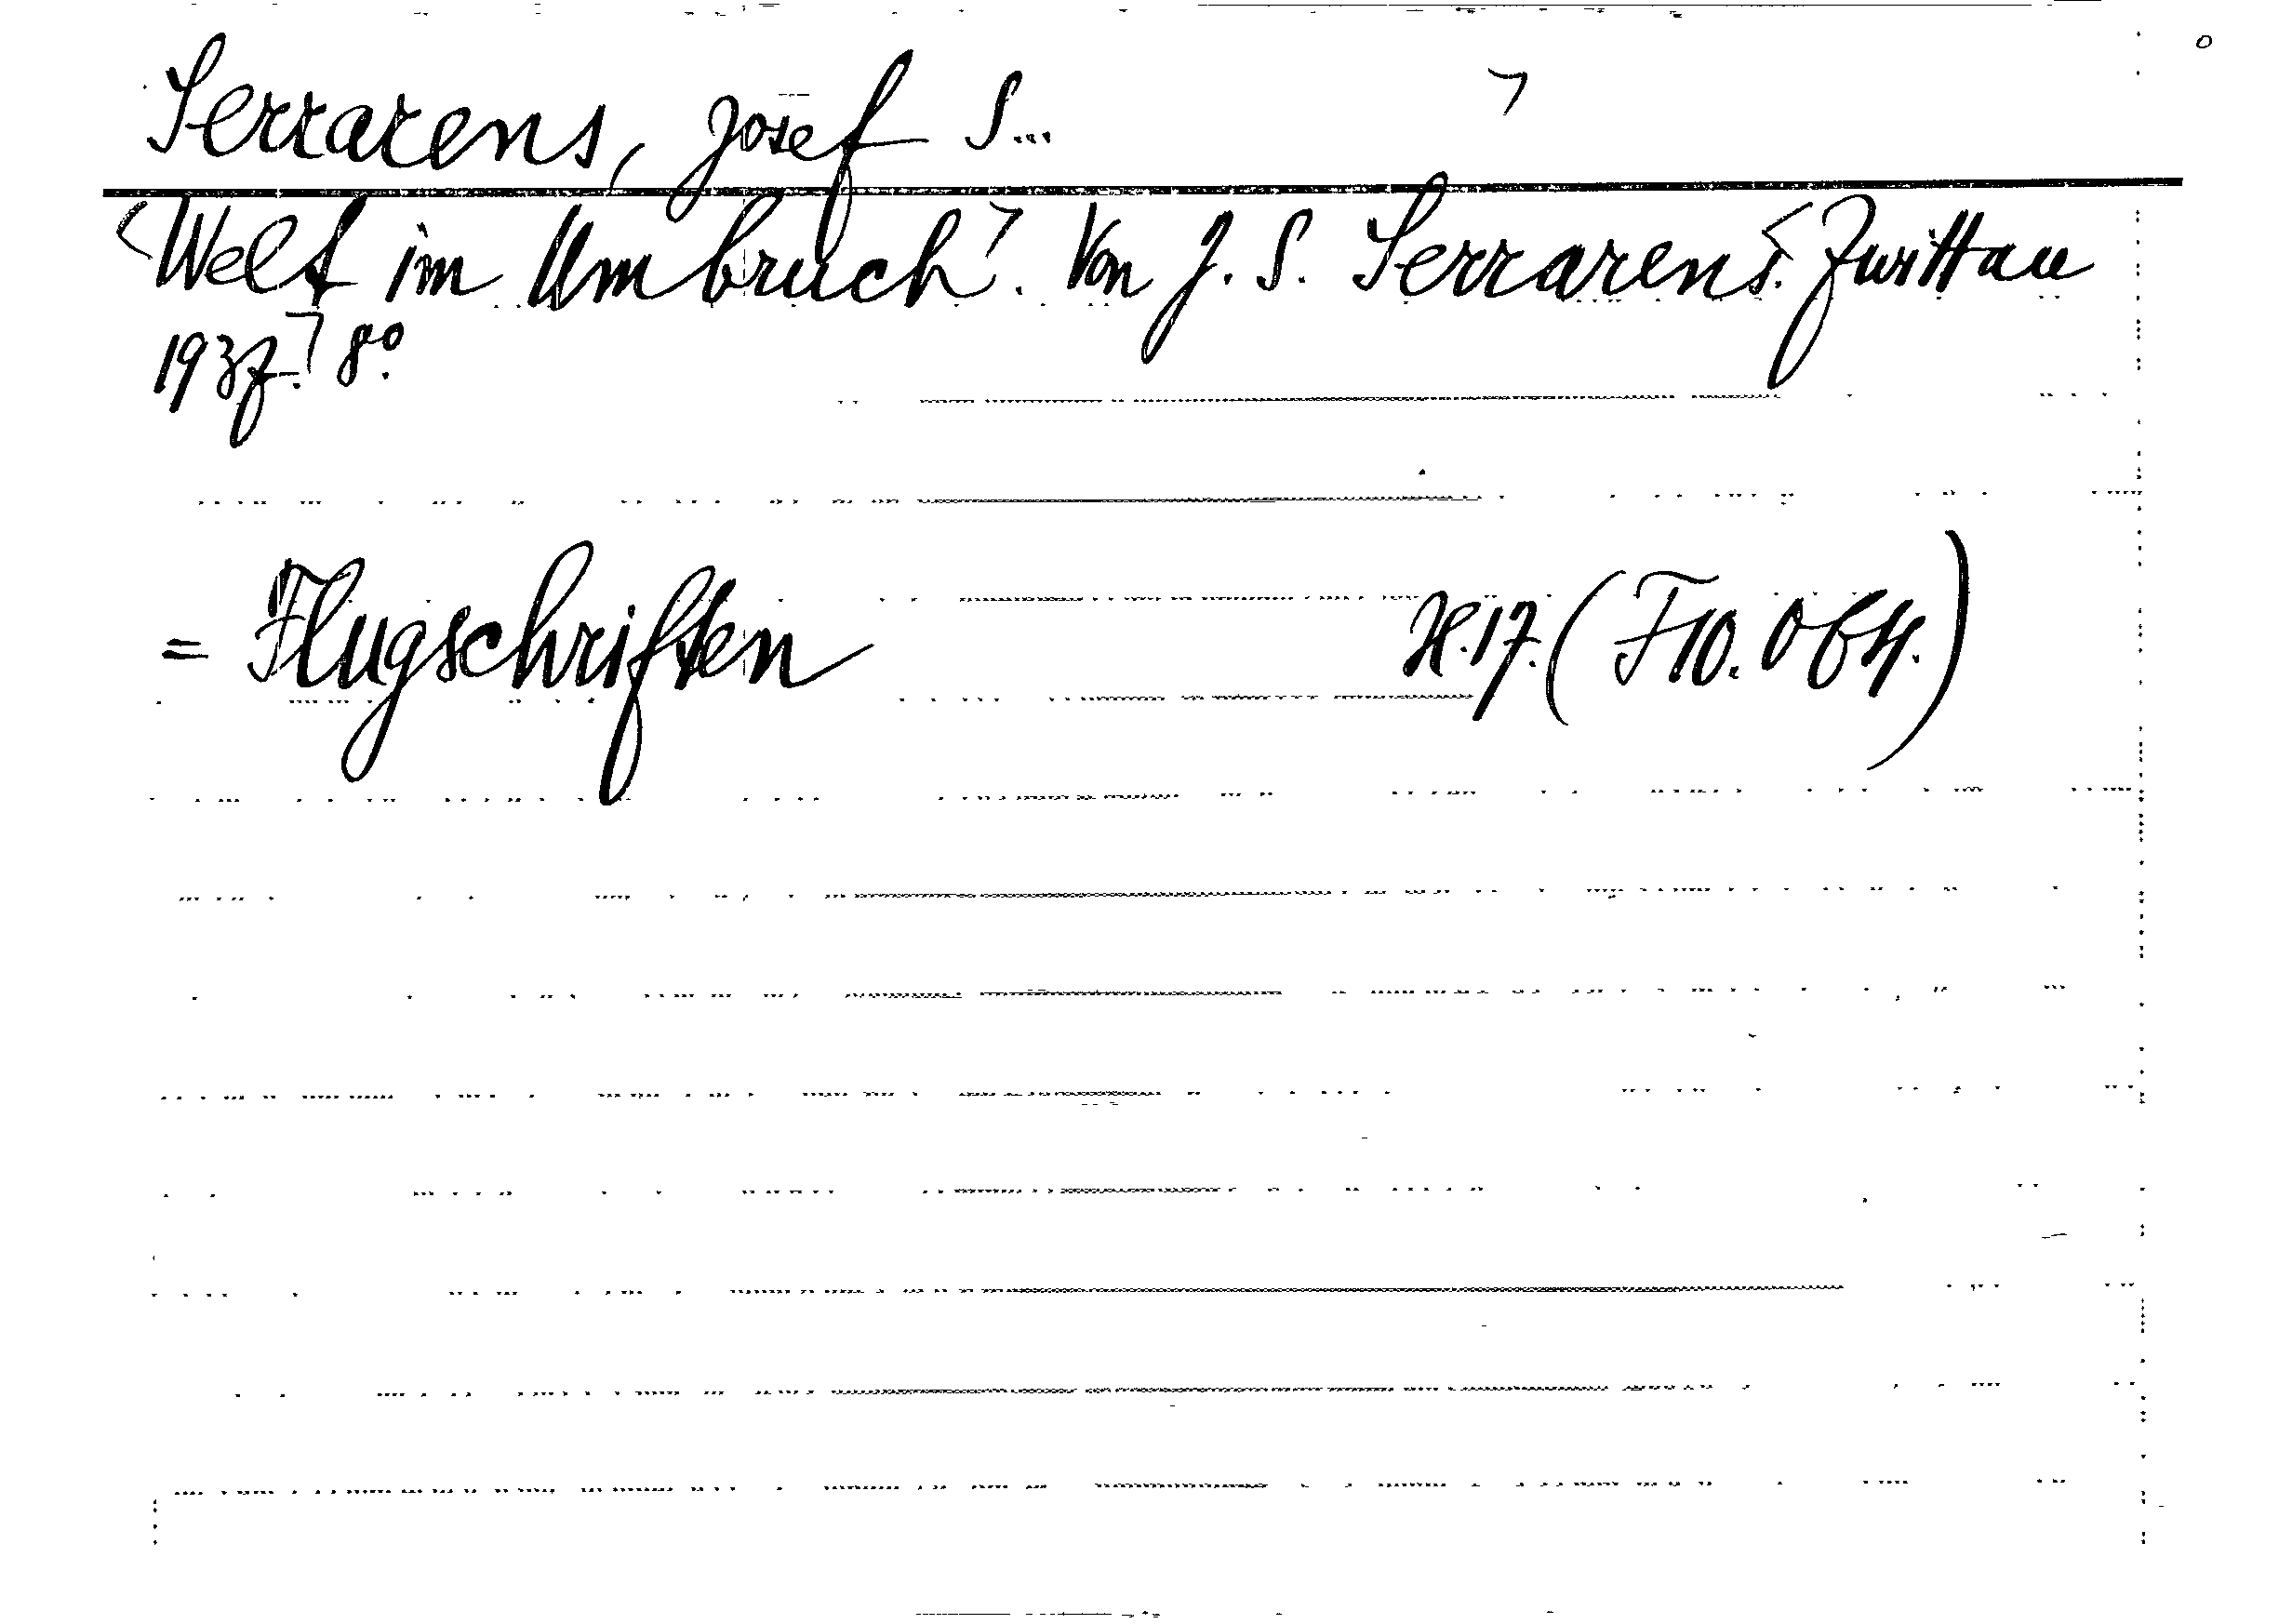 Serrarens, Josef S...
<Welt im Umbruch>. Von J. S. Serrarens. <Zwittau
1937.> 8°.
= Flugschriften H. 17. (F 10. Obh.)